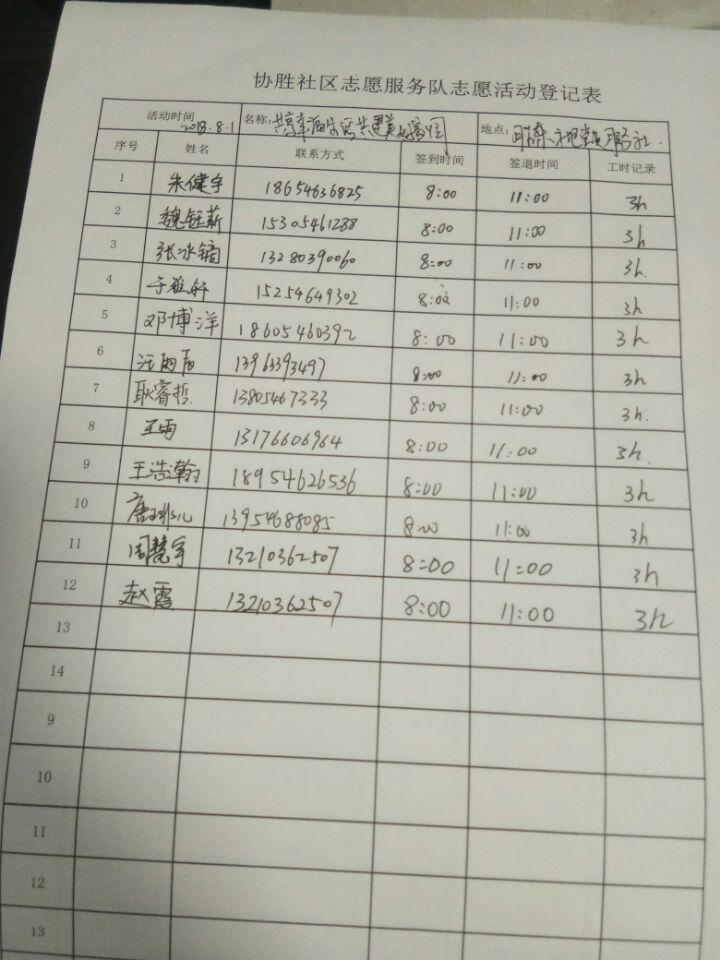 协胜社区志愿服务队志愿活动登记表
活动时间 2018.8.1 名称: 地点:
序号 姓名 联系方式 签到时间 签退时间 工时记录
1 朱健宇 18654636825 8:00 11:00 3h
2 魏钰薪 15305461288 8:00 11:00 3h
3 张冰镝 13280390060 8:00 11:00 3h.
4 15254649302 8:00 11:00 3h
5 邓博洋 18605460392 8:00 11:00 3h
6 13963393497 8:00 11:00 3h
7 耿睿哲 13805467333 8:00 11:00 3h.
8 王雨 13176606964 8:00 11:00 3h.
9 王浩瀚 18954626536 8:00 11:00 3h
10 13954688085 8:00 11:00 3h
11 周慧宇 13210362507 8:00 11:00 3h
12 赵霞 13210362507 8:00 11:00 3h
13
14
9
10
11
12
13